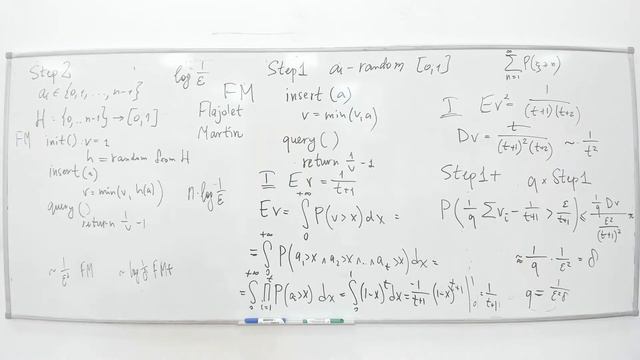 Step 2
a_i ∈ {0, 1, ..., n-1}
H = {0, .. n-1} → [0,1]
FM init() v = 1
h = random from H
insert(a)
v = min(v, h(a))
query()
return 1/v - 1
~ 1/ε² FM ~ log 1/δ FM+
log 1/ε
FM
Flajolet
Martin
n·log 1/ε
Step 1 a_i - random [0,1]
insert (a)
v = min(v, a)
query()
return 1/v - 1
I Ev = 1/(t+1)
Ev = ∫_0^{+∞} P(v > x) dx =
= ∫_0^{+∞} P(a_1 > x ∧ a_2 > x ∧ ... ∧ a_t > x) dx =
= ∫_0^{+∞} ∏_{i=1}^t P(a_i > x) dx = ∫_0^1 (1-x)^t dx = -1/(t+1) (1-x)^{t+1} |_0^1 = 1/(t+1)
∑_{n=1}^∞ P(ξ > n)
I Ev² = 2/((t+1)(t+2))
Dv = t/((t+1)²(t+2)) ~ 1/t²
Step 1+ q × Step 1
P(1/q ∑ v_i - 1/(t+1) > ε/(t+1)) ≤ (1/q Dv)/(ε²/(t+1)²) ≈
≈ 1/q · 1/ε² = δ
q = 1/(ε²δ)